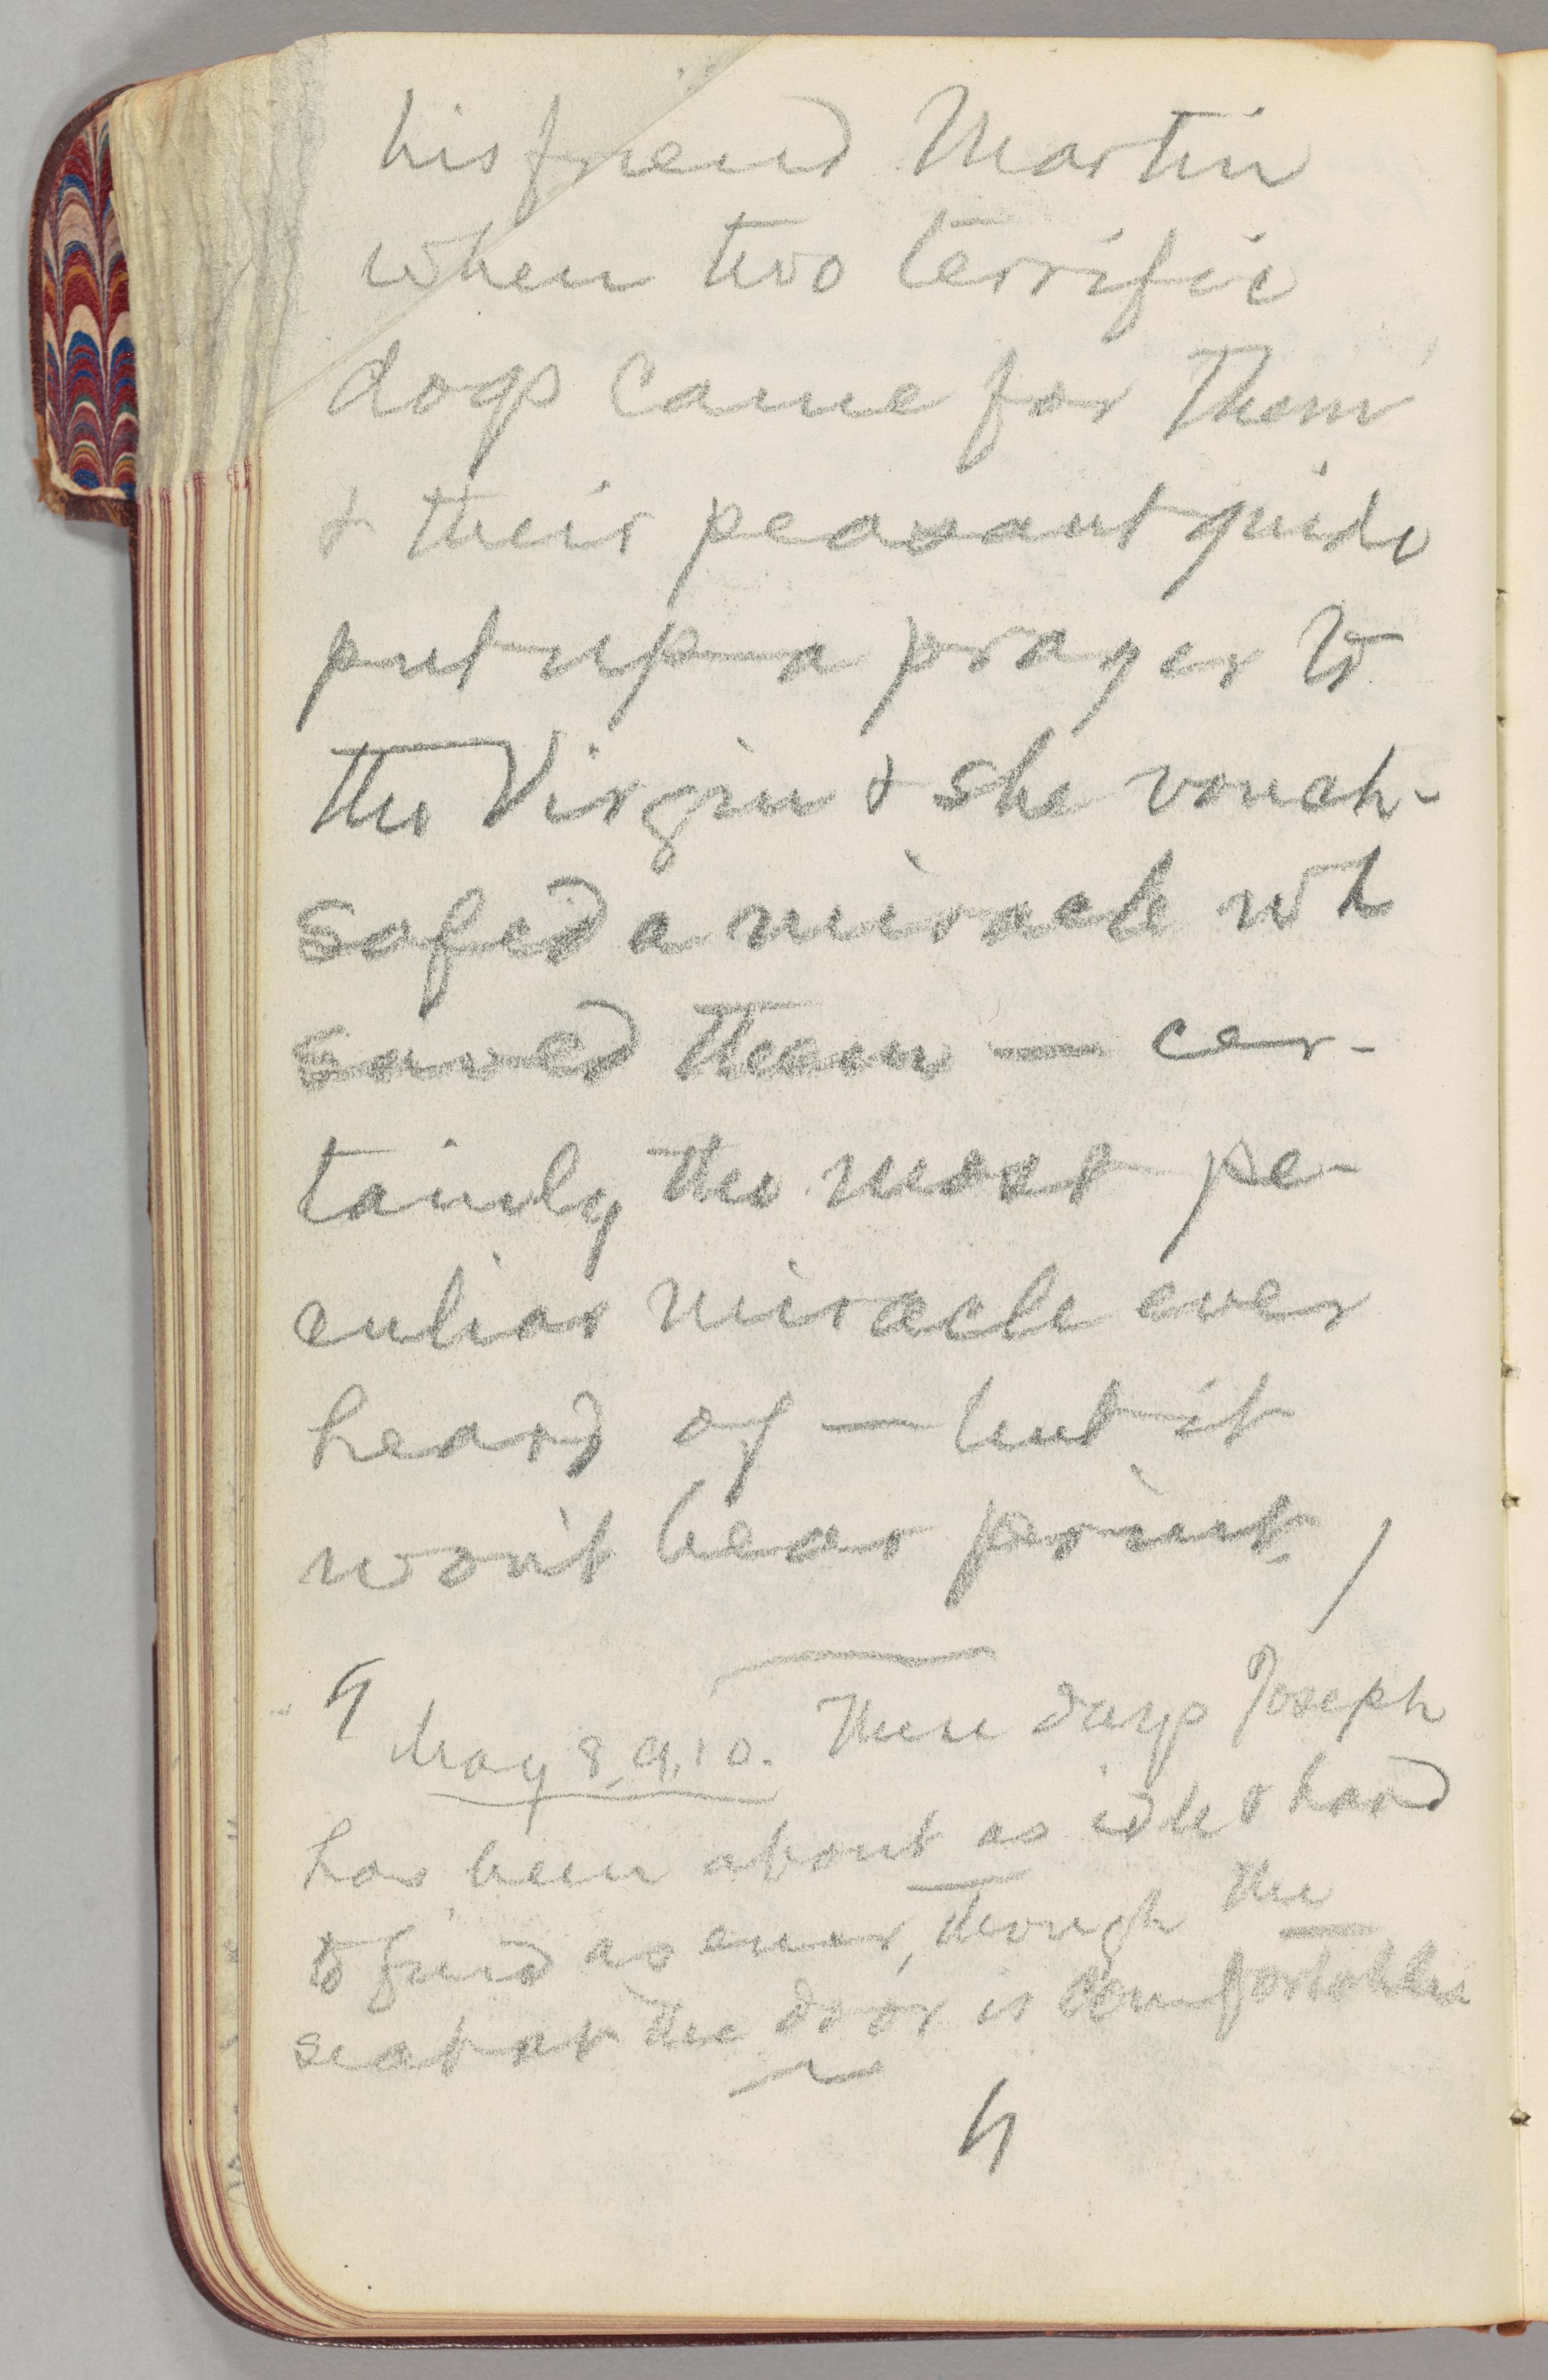 his friend Martin
when two terrific
dogs came for them
& their peasant guide
put up a prayer to
the Virgin & she vouch-
safed a miracle wh
saved them — cer-
tainly the most pe-
culiar miracle ever
heard of — but it
won't bear print.
¶ May 8, 9, 10. These days Joseph
has been about as idle & hard
to find as ever, though the
seat at the door is comfortable